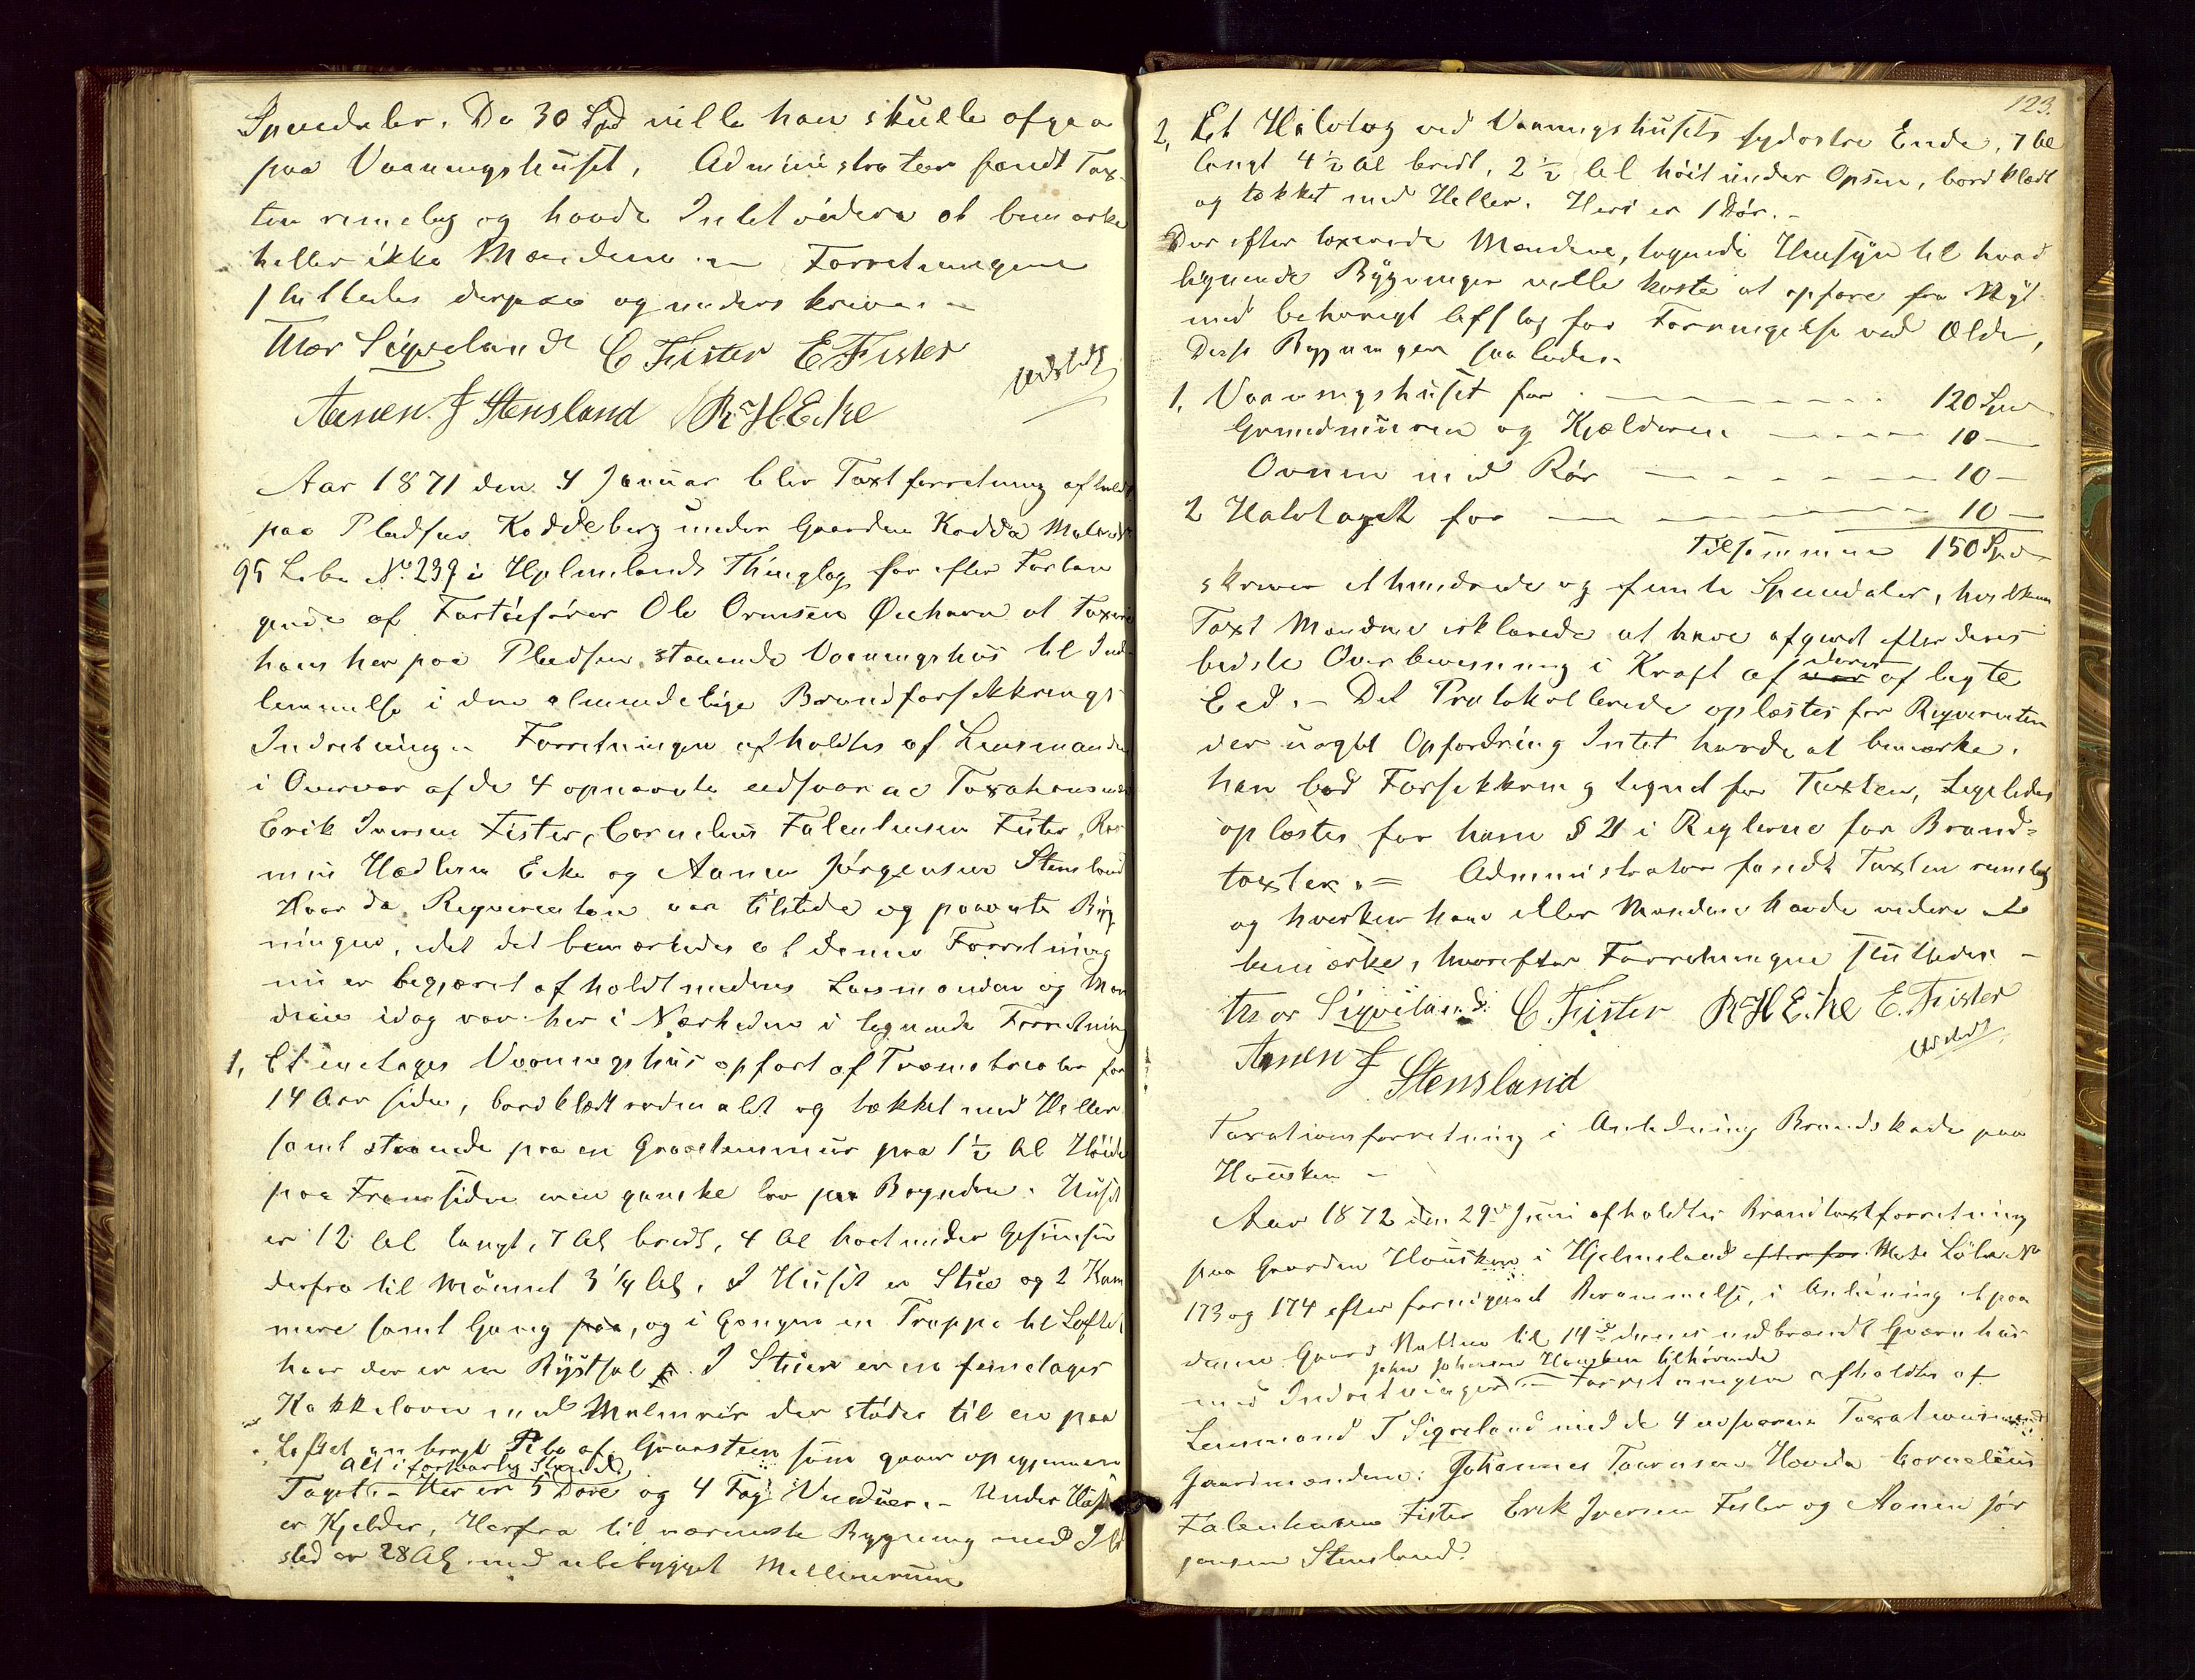 Speciedaler. Da 30 Spd ville han skulle afgaa
paa Vaaningshuset, Administrator fandt Tax-
ten rimelig og havde Intet videre at bemærke
heller ikke Mændene. Forretningen
sluttedes derpaa og underskreven.
Thor Sigvelande C Fister E Fister
Udstedt
Aanen J Stensland R H Eike
Aar 1871 den 4 Januar blev Taxtforretning afholdt
paa Pladsen Koddeberg under Gaarden Kodda Matr No
95 Løbe No. 239 i Hjelmelands Thinglag for efter Forlan
gende af Partiefører Ole Ormsen at Taxere
hans her paa Pladsen staaende Vaaningshus til Ind-
lemmelse i den almindelige Brandforsikkrings
Indretning. Forretningen afholdtes af Lensmanden
i Overvær af de 4 opnævnte eedsvorne Taxationsmænd
Erik Iversen Fister, Cornelius Falentinsen Fister, Ras
mus Eike og Aanen Jörgensen Stensland
Hvor da Reqvirenten var tilstede og paaviste Byg
ningen, idet det bemærkedes at denne Forretning
nu er begjæret afholdt medens Lensmanden og Mæn
dene idag var her i Nærheden i lignende Forretning
1, Et enetages Vaaningshus opført af Tømmer for
14 Aar siden, bordklædt rødmalet og tækket med Heller
samt staaende paa en Graastensmuur paa 1½ Al Höide
paa Fremsiden men ganske lav paa Bagsiden. Huset
er 12 Al langt, 7 Al bredt, 4 Al høit under Gesimsen
derfra til Mönnet 3¼ Al. I Huset er Stue og 2 Kam
mere samt Gang paa, og i Gangen en Trappe til Loftet
hvor der er en Rÿstsal. I Stuen er en femetages
Kakkelovn med Malmrör der stöder til en paa
Loftet anbragt Pibe af Graasteen som gaaer op gjennem
Alt i forsvarlig Stand
Taget. - Her er 5 Døre og 4 Fag Vinduer. - Under Huset
er Kjelder, Herfra til nærmeste Bygning med Ild
sted er 28 Al med ubebygget Mellemrum
123.
2, Et Halvtag ved Vaaningshusets sydøstre Ende, 7 Al
langt 4½ Al bredt, 2½ Al höit under Opsen, bordklædt
og tækket med Heller. Heri er 1 Dör. -
Derefter taxerede Mændene, tagende Hensÿn til hvad
lignende Bÿgninger ville koste at opføre fra Nÿt
med behørigt Afslag for Forringelse ved Ælde,
Disse Bygninger saaledes.
1, Vaaningshuset for 120 Spd.
Grundmüren og Kjælderen 10 -
Ovnen med Rör 10 -
2 Halvtaget for 10 -
Tilsammen 150 Spd
skriver et hundrede og femti Speciedaler, hvilken
Taxt Mændene erklærede at have afgivet efter deres
bedste Overbeviisning i Kraft af deres aflagte
Eed. - Det Protokollerede oplæstes for Reqvirenten
der uagtet Opfordring Intet havde at bemærke.
han bad Forsikkring tegnet for Taxten, Ligeledes
oplæstes for ham § 21 i Reglerne for Brand-
taxter. = Administrator fandt Taxten rimelig
og hverken han eller Mændene havde videre at
bemærke, hvorefter Forretningen sluttedes. -
Thor Sigveland. C Fister R H Eike E. Fister
Udstedt
Aanen J
Stensland
Taxationsforretning i Anledning Brandskade paa
Housken -
Aar 1872 den 29de Juni afholdtes Brandtaxtforretning
paa Gaarden Housken i Hjelmeland efter for Matr Löbe No
173 og 174 efter foregaaet Berammelse, i Anledning at paa
denne Gaard Natten til 14de dennes nedbrændt Qvernhus
John Johnsen Housken tilhörende
med Indretninger. - Forretningen afholdtes af
Lensmand T Sigveland med de 4 edsvorne Taxationsmænd
Gaardmændene: Johannes Hovda Cornelius
Falentinsen Fister Erik Iversen Fister og Aanen Jör
gensen Stensland.